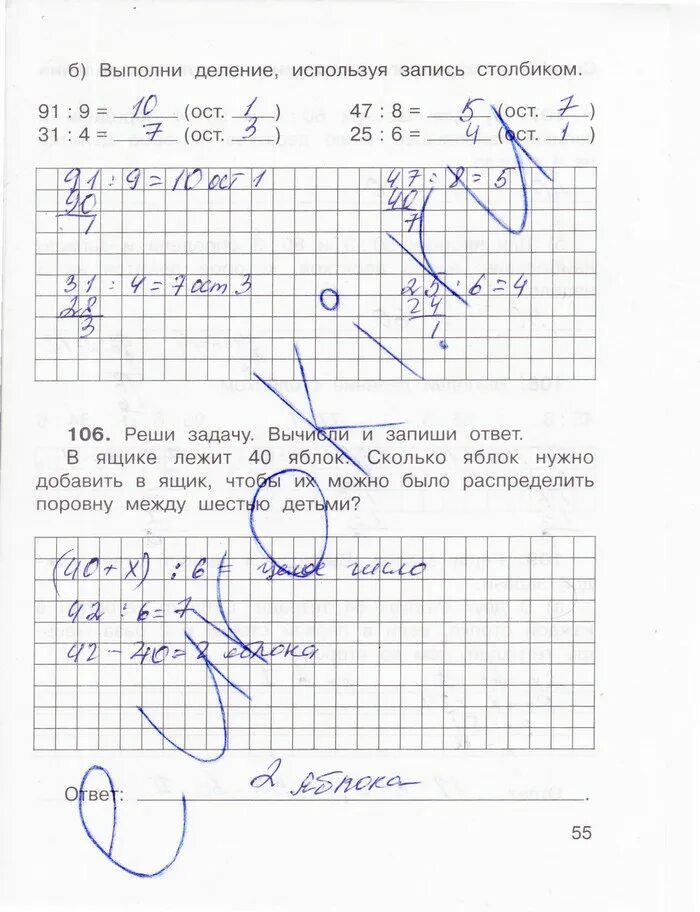 б) Выполни деление, используя запись столбиком.
91 : 9 = 10 (ост. 1) 47 : 8 = 5 (ост. 7)
31 : 4 = 7 (ост. 3) 25 : 6 = 4 (ост. 1)
91 : 9 = 10 ост 1 47 : 8 = 5
90 40
1 7
31 : 4 = 7 ост 3 25 : 6 = 4
28 24
3 1
106. Реши задачу. Вычисли и запиши ответ.
В ящике лежит 40 яблок. Сколько яблок нужно
добавить в ящик, чтобы их можно было распределить
поровну между шестью детьми?
(40 + х) : 6 = целое число
42 : 6 = 7
42 - 40 = 2 яблока
Ответ: 2 яблока.
55